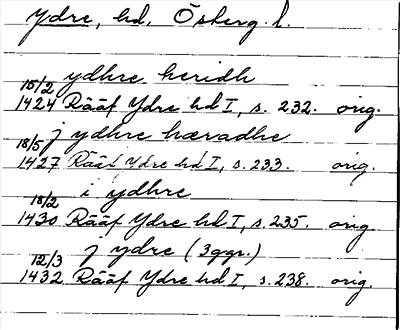 Ydre, hd, Östergl.
ydhre heridh
15/2 1424 Rääf Ydre hd I, s. 232. orig.
j ydhre hæradhe
18/5 1427 Rääf Ydre hd I, s. 233. orig.
i ydhre
18/2 1430 Rääf Ydre hd I, s. 235. orig.
j ydre (3ggr.)
12/3 1432 Rääf Ydre hd I, s. 238. orig.